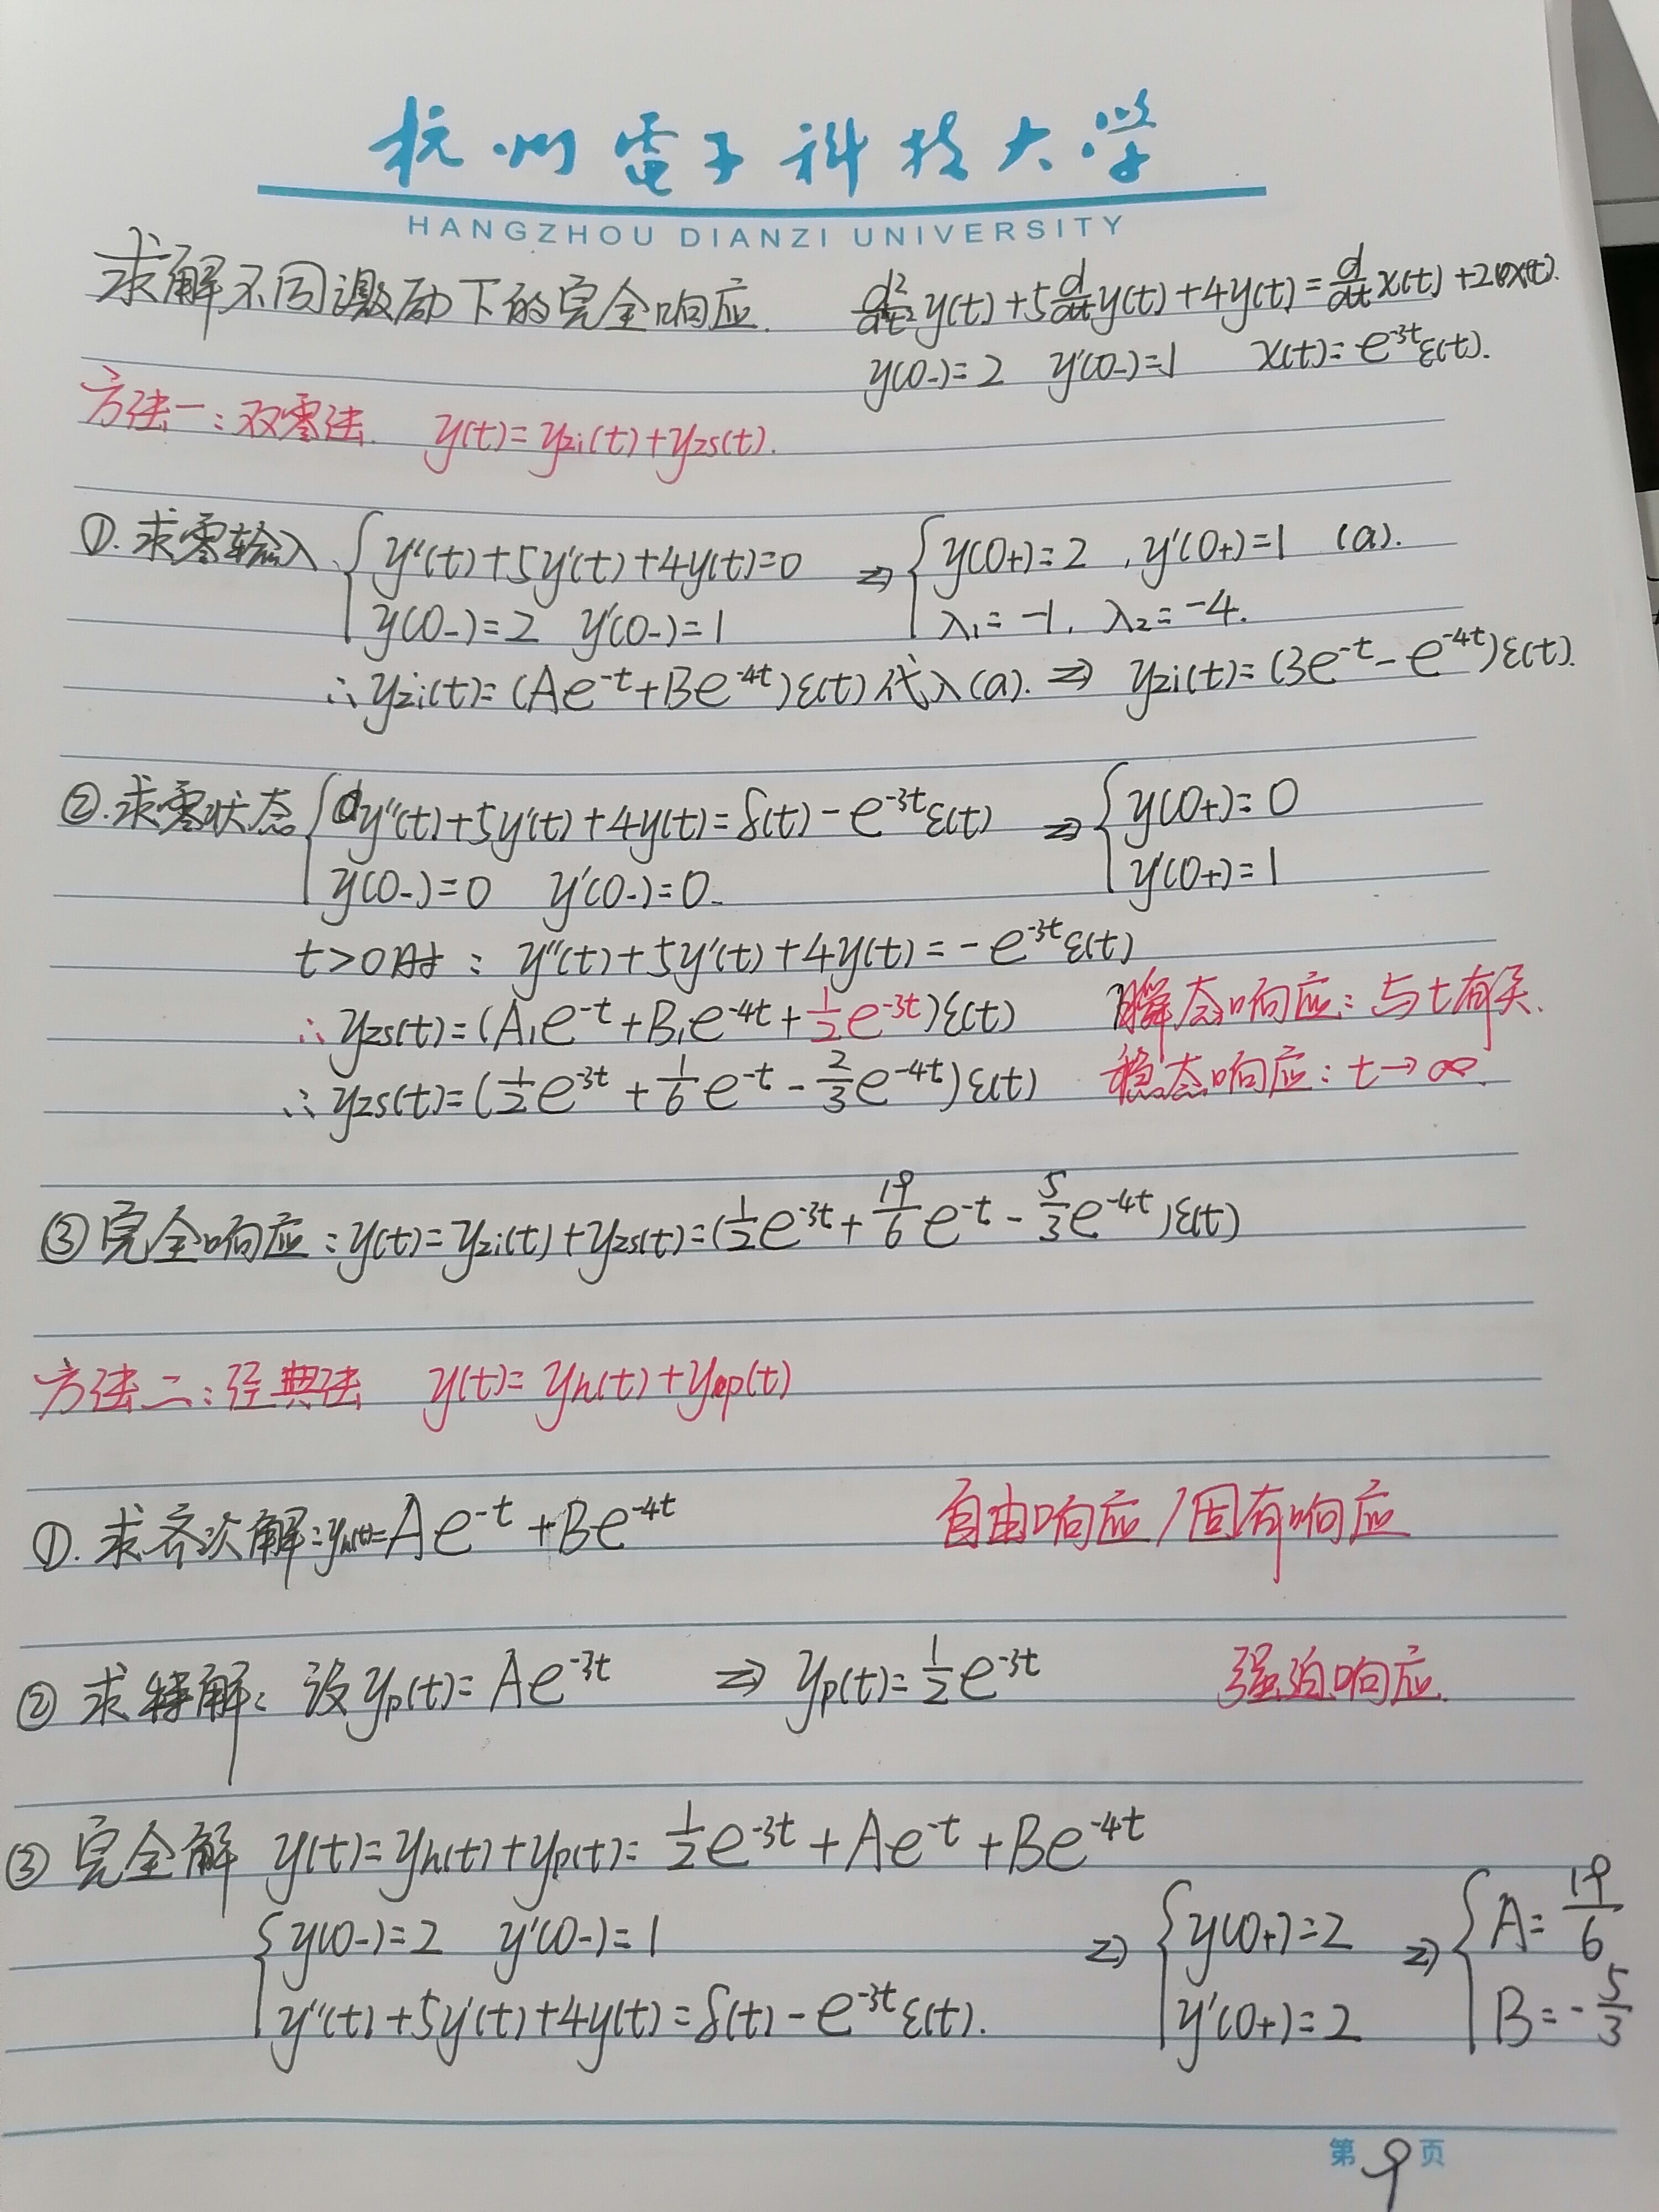 杭州電子科技大学
HANGZHOU DIANZI UNIVERSITY
求解不同激励下的完全响应. d²/dt² y(t)+5 d/dt y(t)+4y(t)= d/dt x(t)+2x(t).
y(0-)=2 y'(0-)=1 x(t)=e^{-3t}ε(t).
方法一:双零法. y(t)=yzi(t)+yzs(t).
①.求零输入 { y''(t)+5y'(t)+4y(t)=0 ⇒ { y(0+)=2 , y'(0+)=1 (a).
y(0-)=2 y'(0-)=1 λ₁=-1, λ₂=-4.
∴yzi(t)=(Ae^{-t}+Be^{-4t})ε(t)代入(a). ⇒ yzi(t)=(3e^{-t}-e^{-4t})ε(t).
②.求零状态 { y''(t)+5y'(t)+4y(t)=δ(t)-e^{-3t}ε(t) ⇒ { y(0+)=0
y(0-)=0 y'(0-)=0 y'(0+)=1
t>0时: y''(t)+5y'(t)+4y(t)=-e^{-3t}ε(t)
∴yzs(t)=(A₁e^{-t}+B₁e^{-4t}+1/2e^{-3t})ε(t) 瞬态响应:与t有关.
∴yzs(t)=(1/2e^{-3t}+1/6e^{-t}-2/3e^{-4t})ε(t) 稳态响应:t→∞.
③完全响应:y(t)=yzi(t)+yzs(t)=(1/2e^{-3t}+19/6e^{-t}-5/3e^{-4t})ε(t)
方法二:经典法 y(t)=yh(t)+yp(t)
①.求齐次解:yh(t)=Ae^{-t}+Be^{-4t} 自由响应/固有响应
② 求特解:设yp(t)=Ae^{-3t} ⇒ yp(t)=1/2e^{-3t} 强迫响应.
③ 完全解 y(t)=yh(t)+yp(t)=1/2e^{-3t}+Ae^{-t}+Be^{-4t}
{ y(0-)=2 y'(0-)=1 ⇒ { y(0+)=2 ⇒ { A=19/6
y''(t)+5y'(t)+4y(t)=δ(t)-e^{-3t}ε(t). y'(0+)=2 B=-5/3
第 9 页